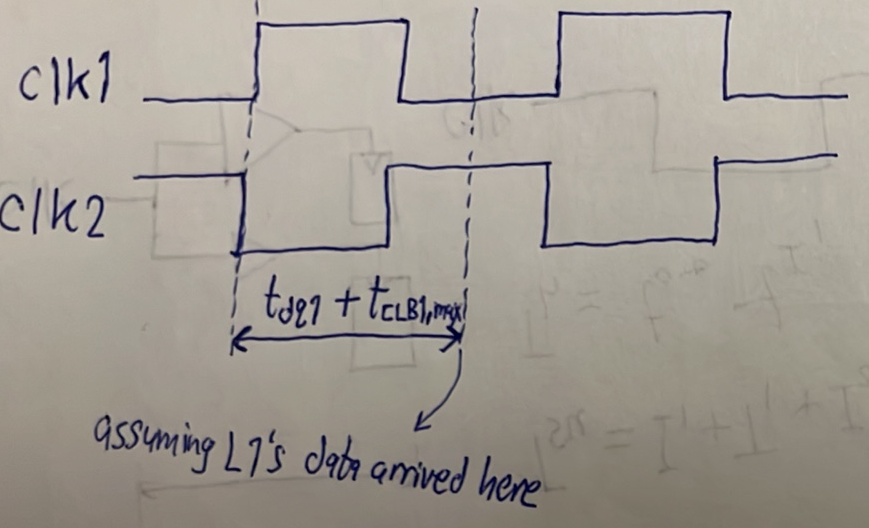 clk1
clk2
tdq1 + tCLB1,max
assuming L1's data arrived here